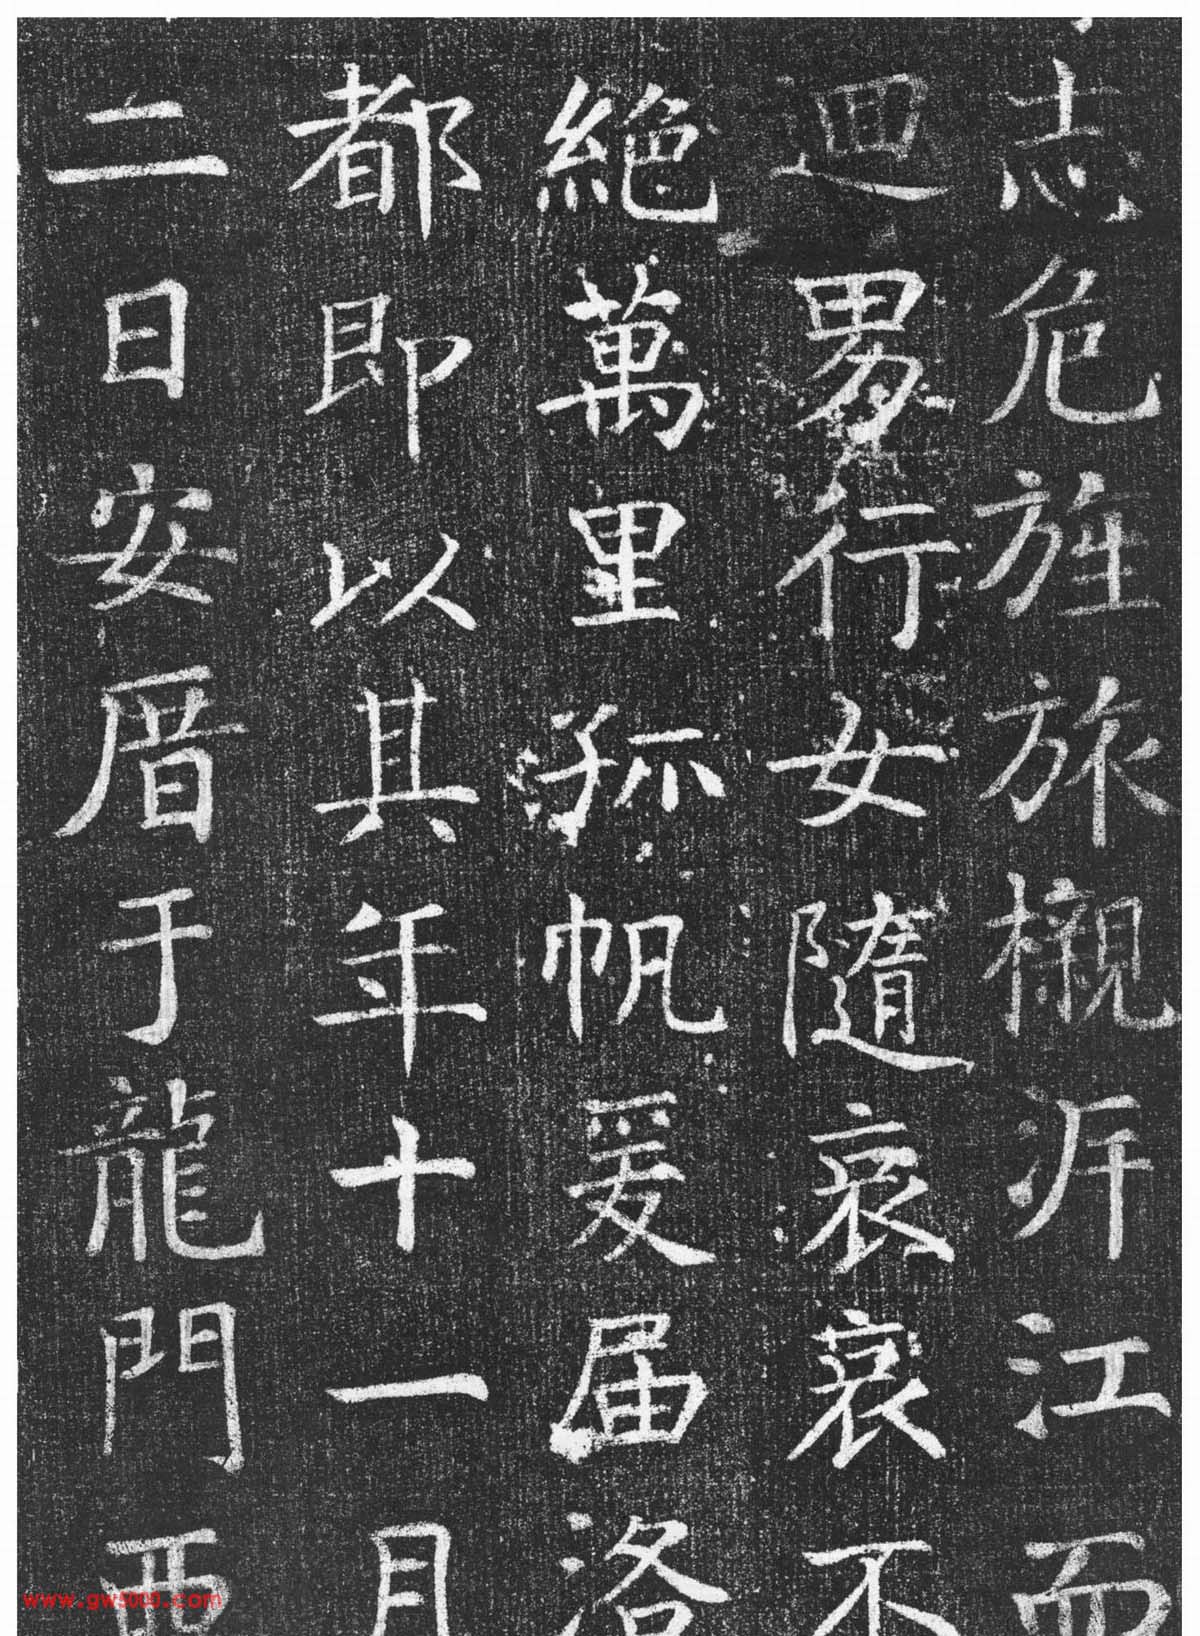 志危旌旅櫬泝江而
迴男行女隨哀哀不
絕萬里孤帆爰届洛
都即以其年十一月
二日安厝于龍門西
www.gw5000.com